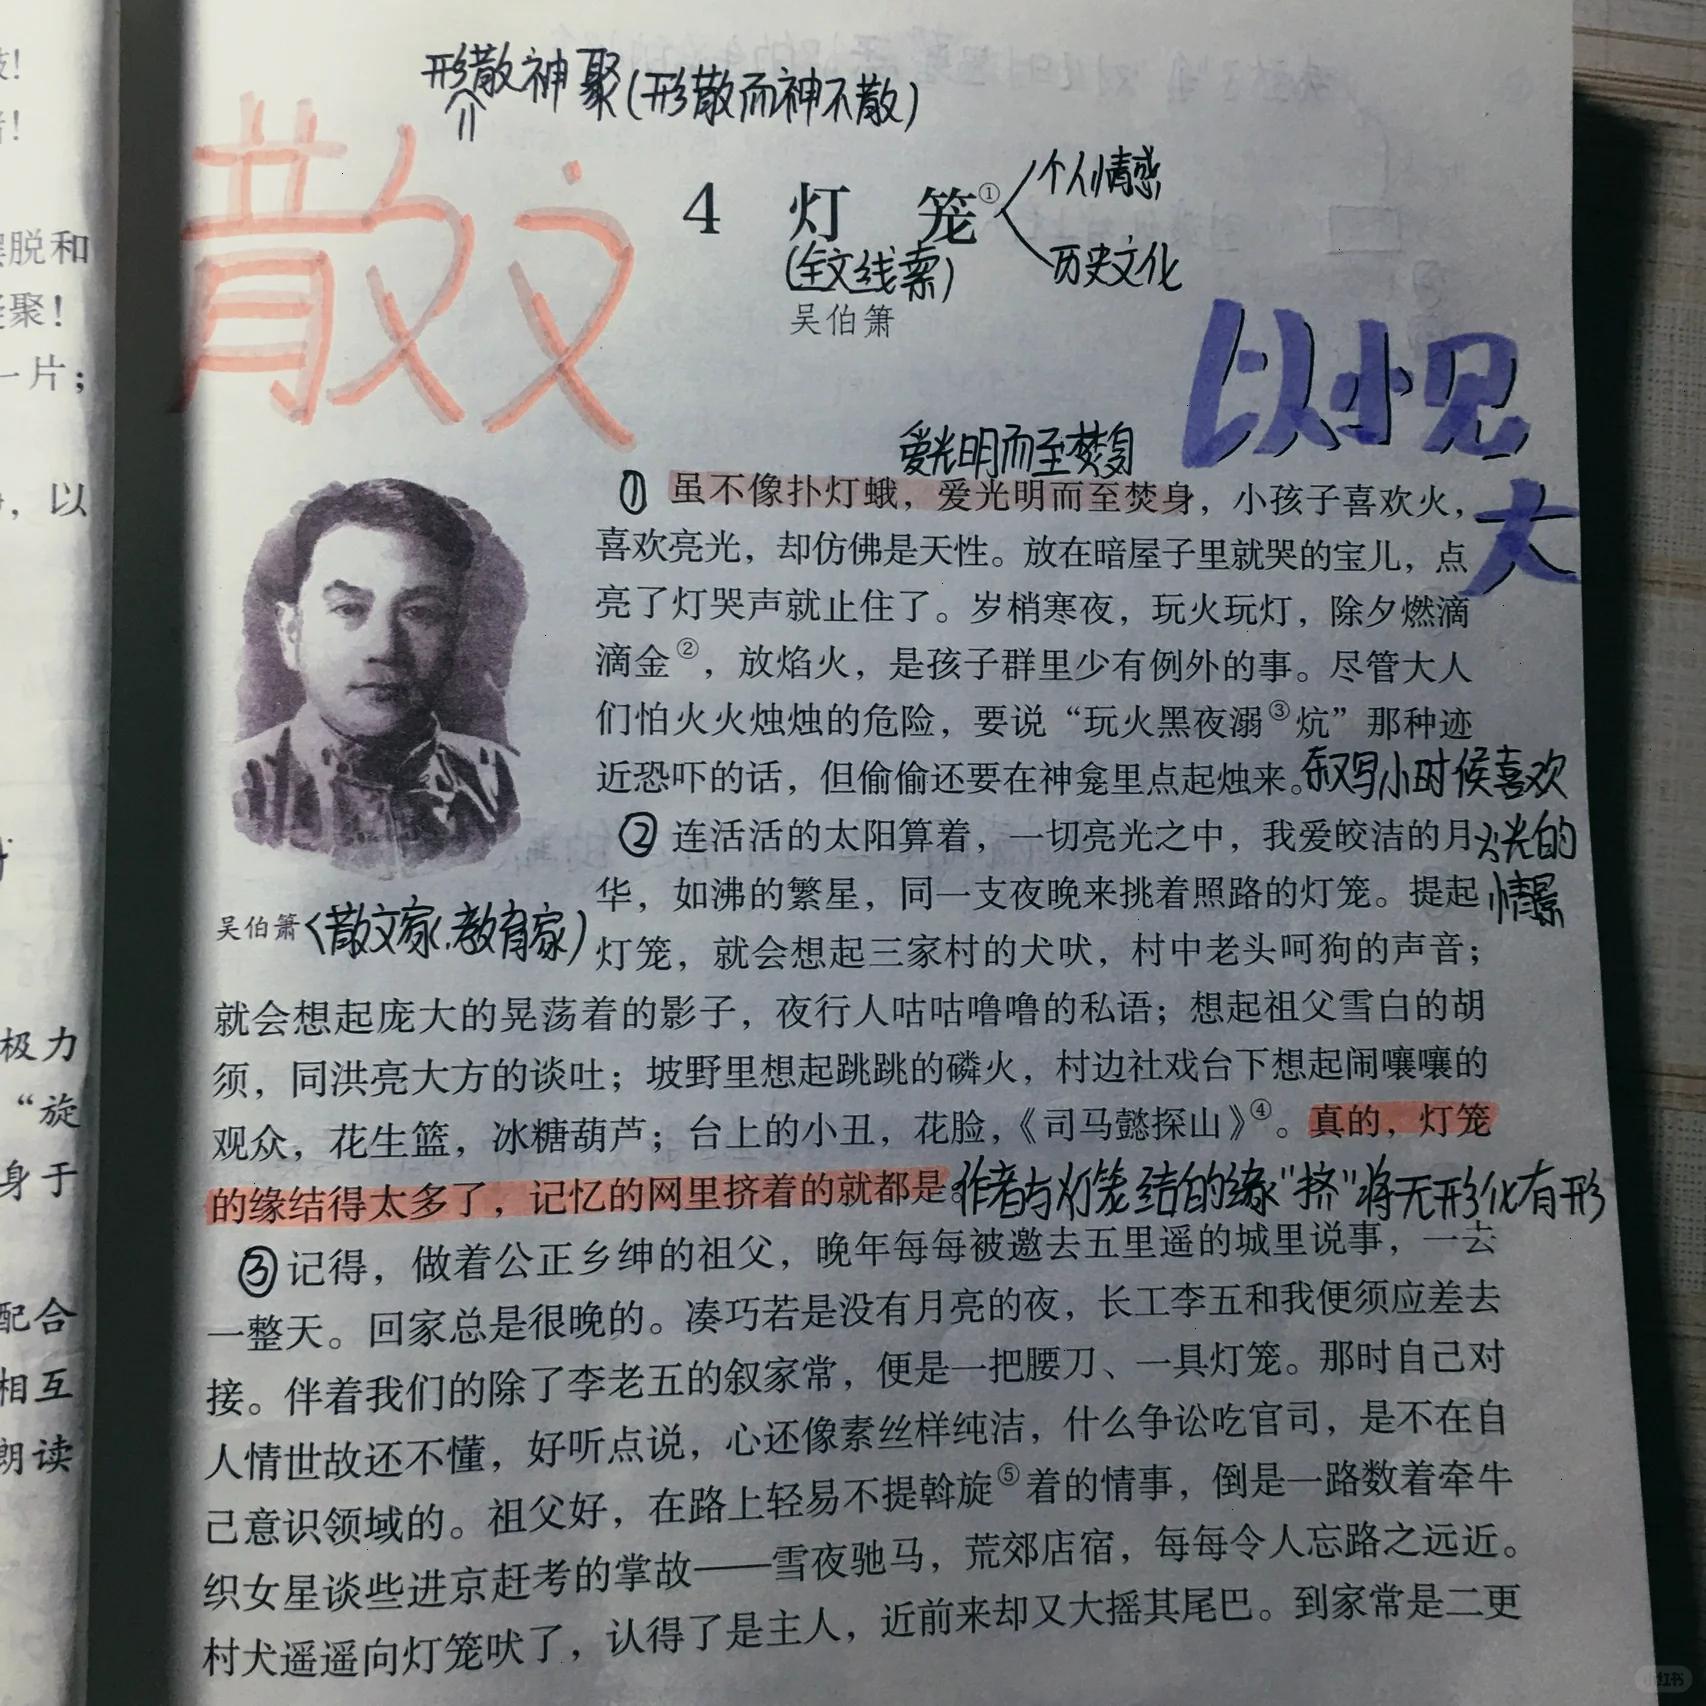 形散神聚(形散而神不散)
散文
4 灯 笼①
个人情感
历史文化
(全文线索)
吴伯箫
以小见
大
爱光明而至焚身
① 虽不像扑灯蛾，爱光明而至焚身，小孩子喜欢火，
喜欢亮光，却仿佛是天性。放在暗屋子里就哭的宝儿，点
亮了灯哭声就止住了。岁梢寒夜，玩火玩灯，除夕燃滴
滴金②，放焰火，是孩子群里少有例外的事。尽管大人
们怕火火烛烛的危险，要说“玩火黑夜溺③炕”那种迹
近恐吓的话，但偷偷还要在神龛里点起烛来。
叙写小时候喜欢
火光的
情景
② 连活活的太阳算着，一切亮光之中，我爱皎洁的月
华，如沸的繁星，同一支夜晚来挑着照路的灯笼。提起
吴伯箫(散文家、教育家)
灯笼，就会想起三家村的犬吠，村中老头呵狗的声音；
就会想起庞大的晃荡着的影子，夜行人咕咕噜噜的私语；想起祖父雪白的胡
须，同洪亮大方的谈吐；坡野里想起跳跳的磷火，村边社戏台下想起闹嚷嚷的
观众，花生篮，冰糖葫芦；台上的小丑，花脸，《司马懿探山》④。真的，灯笼
的缘结得太多了，记忆的网里挤着的就都是。
作者与灯笼结的缘“挤”将无形化有形
③ 记得，做着公正乡绅的祖父，晚年每每被邀去五里遥的城里说事，一去
一整天。回家总是很晚的。凑巧若是没有月亮的夜，长工李五和我便须应差去
接。伴着我们的除了李老五的叙家常，便是一把腰刀、一具灯笼。那时自己对
人情世故还不懂，好听点说，心还像素丝样纯洁，什么争讼吃官司，是不在自
己意识领域的。祖父好，在路上轻易不提斡旋⑤着的情事，倒是一路数着牵牛
织女星谈些进京赶考的掌故——雪夜驰马，荒郊店宿，每每令人忘路之远近。
村犬遥遥向灯笼吠了，认得了是主人，近前来却又大摇其尾巴。到家常是二更
脱和
聚！
一片；
，以
极力
“旋
身于
配合
相互
朗读
小红书